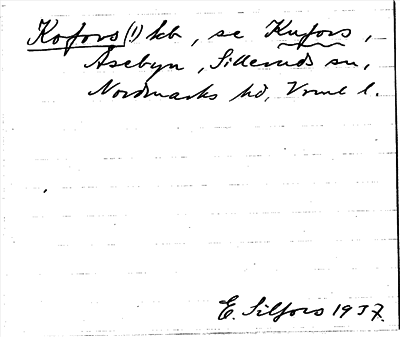 Kofors (1) kb, se Kufors,
Åsebyn, Silleruds sn,
Nordmarks hd, Vrml l.
E. Silfors 1937.